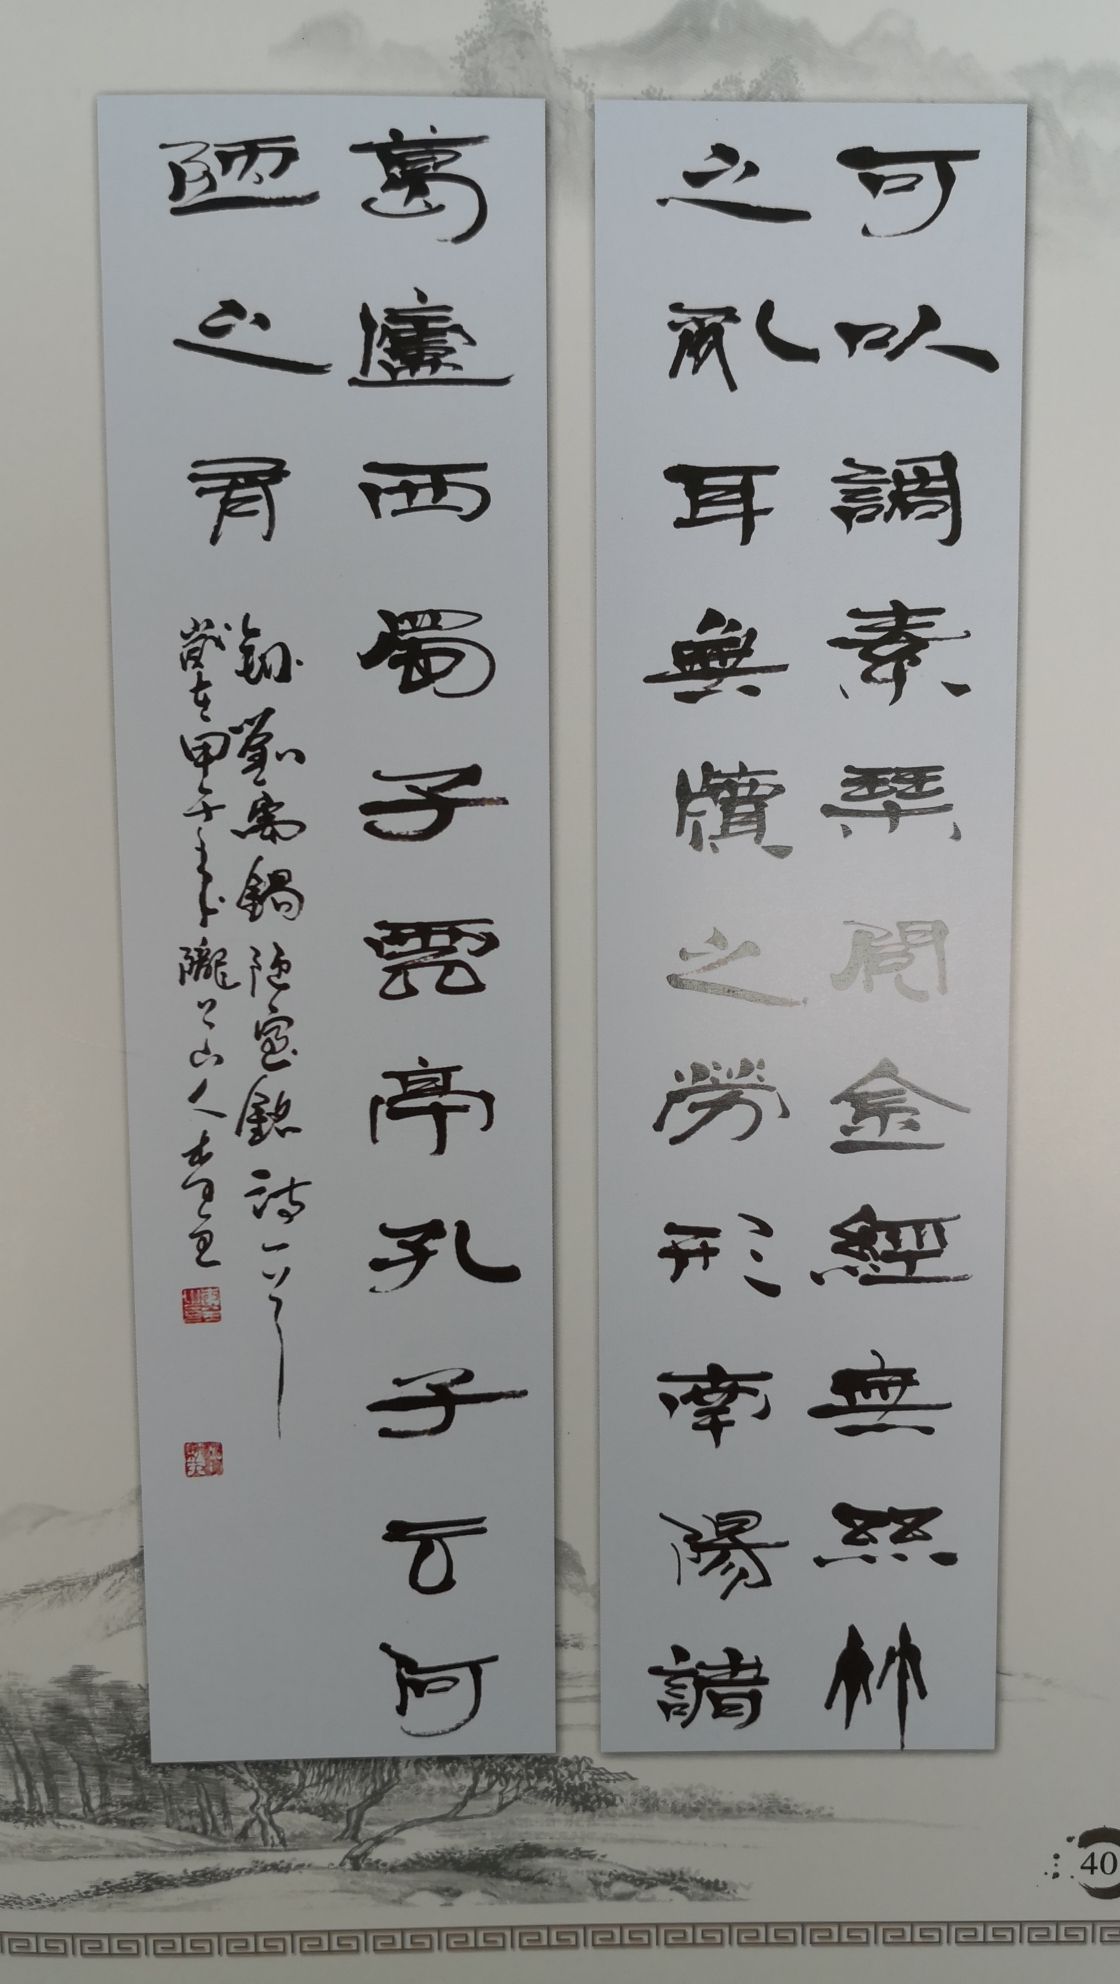 可以調素琴閱金經無絲竹
之亂耳無牘之勞形南陽諸
葛廬西蜀子雲亭孔子云何
陋之有
錄劉禹錫陋室銘詩一首
歲在甲午之秋隴上山人
40